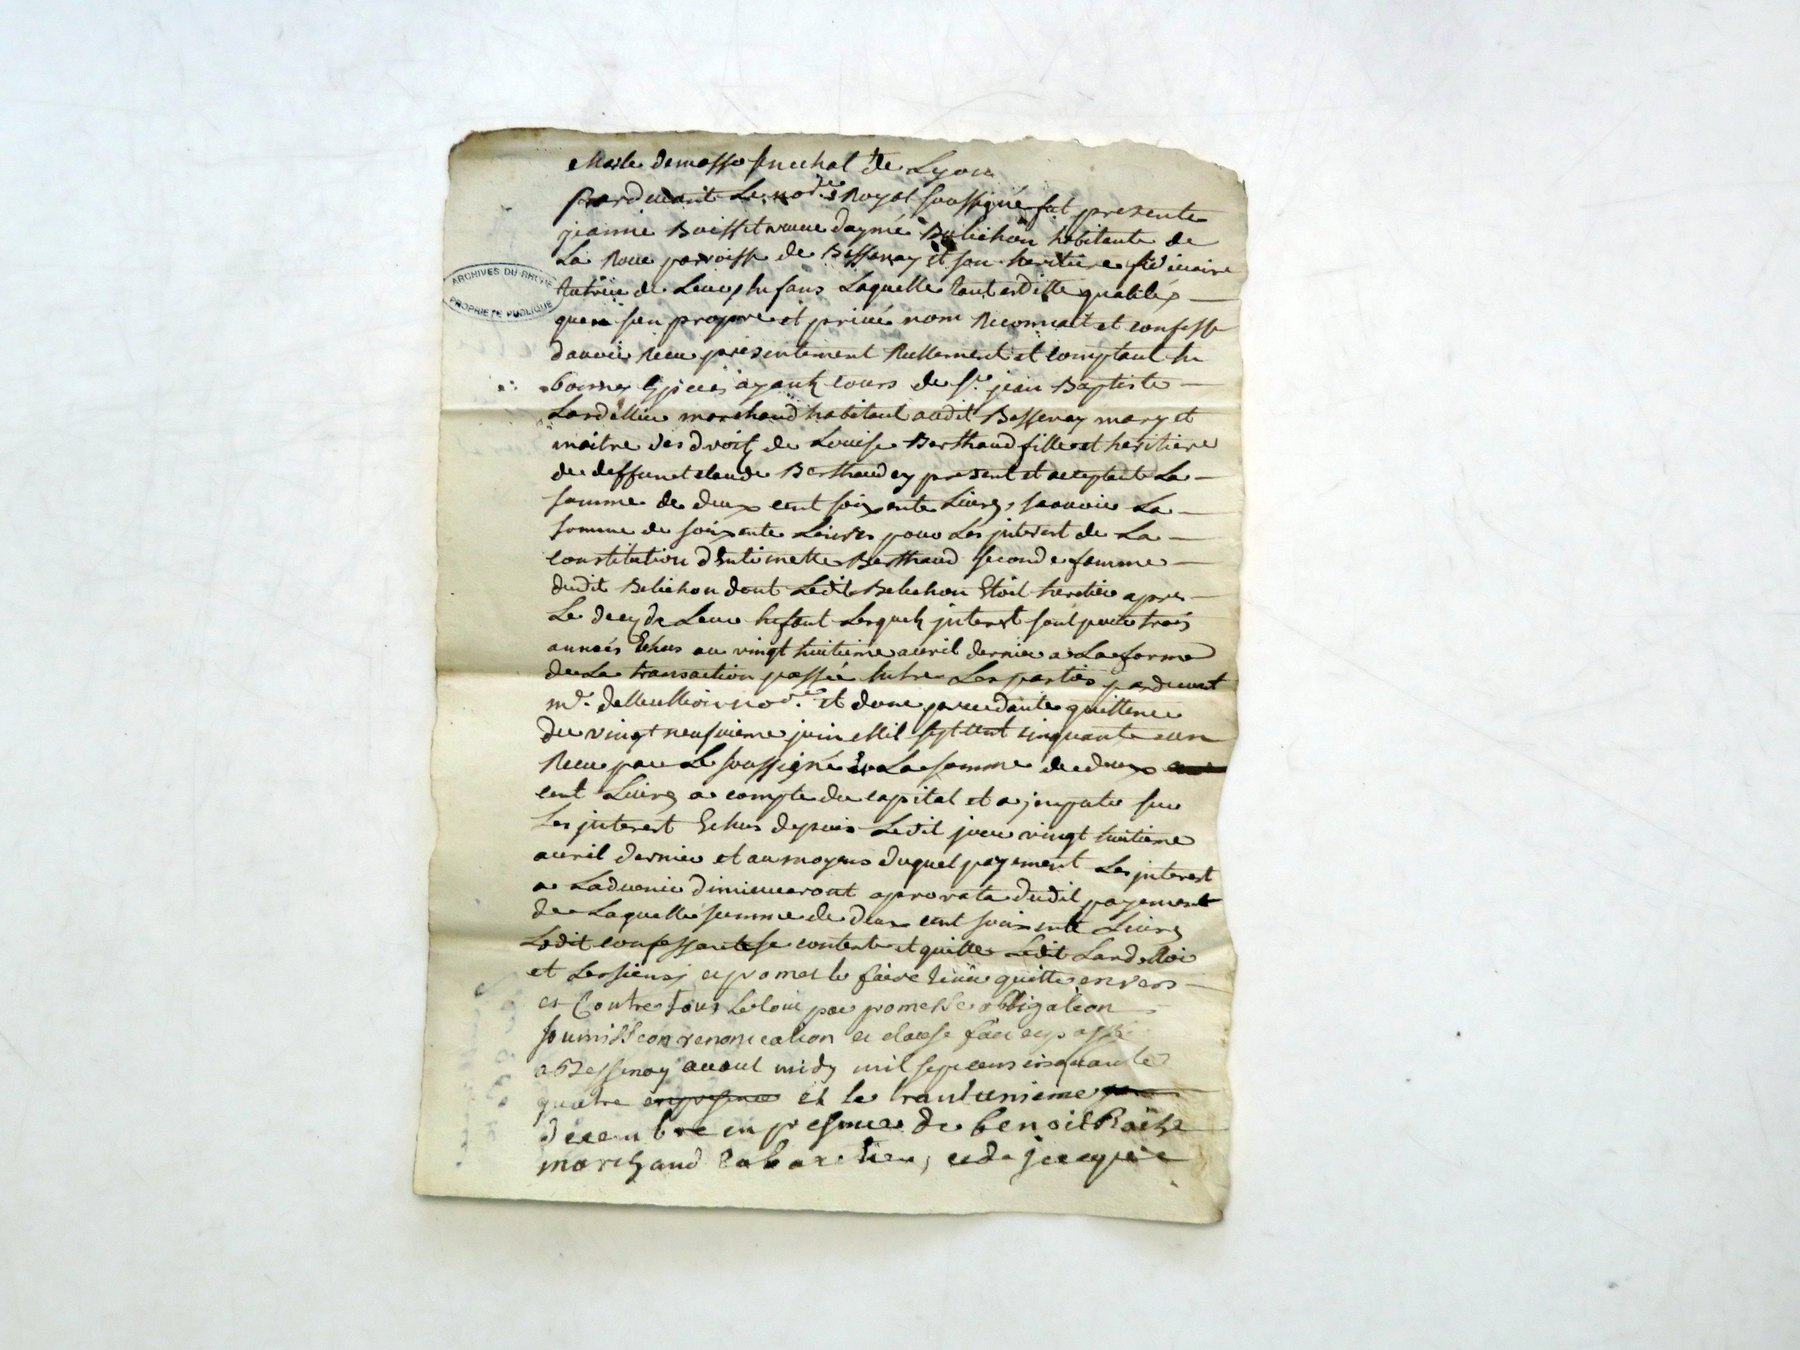 de Lyon
pardevant Le no.re Royal soussigné fut presente
jeanne veuve daymé Belichon habitante de
La Roue parroisse de Bessenay et son heritiere fiduciaire
de Leurs Enfans Laquelle tant esditte qualités
quen son propre et privé nom Reconnait et confesse
davoir Receu presentement Reellement et comptant En
bonnes Espices ayants cours de Sr. jean Baptiste
marchand habitant audit Bessenay mary et
maitre des droits de Louise Berthaud fille et heritiere
de deffunt claude Berthaud cy present et acceptant La
somme de deux cent soixante Livres, scavoir La
somme de soixante Livres pour Les jnterest de La
constitution dEntoinette Berthaud seconde femme
dudit Belichon dont Ledit Belichon Etoit heretier apres
Le decey de Leur Enfant Lesquels jnterest sont pour trois
années Echus au vingt huitieme avril dernier a La forme
de La transaction passée Entre Les parties pardevant
no.re et dune precedante quittence
du vingt neufvieme juin Mil sept cent cinquante un
Receu par Le soussigné et La somme de deux
cent Livres a compte du capital et a jmputer sur
Les jnterest Echus depuis Ledit jour vingt huitieme
avril dernier et au moyens duquel payement Les jnterest
a Ladvenir diminueront aprorata dudit payement
de Laquelle somme de deux cent soixante Livres
se contente et quitte Ledit
et Les siens et promet le faire tenir quitte envers
et Contre tous Le tout par promesse obligation
soumission renonciation et clause fait et passé
a Bessenay avant midy mil sept cens cinquante
quatre et le trante unieme
decembre en presence de benoit
marchand cabaretier, et de jacques
ARCHIVES DU RHÔNE
PROPRIÉTÉ PUBLIQUE